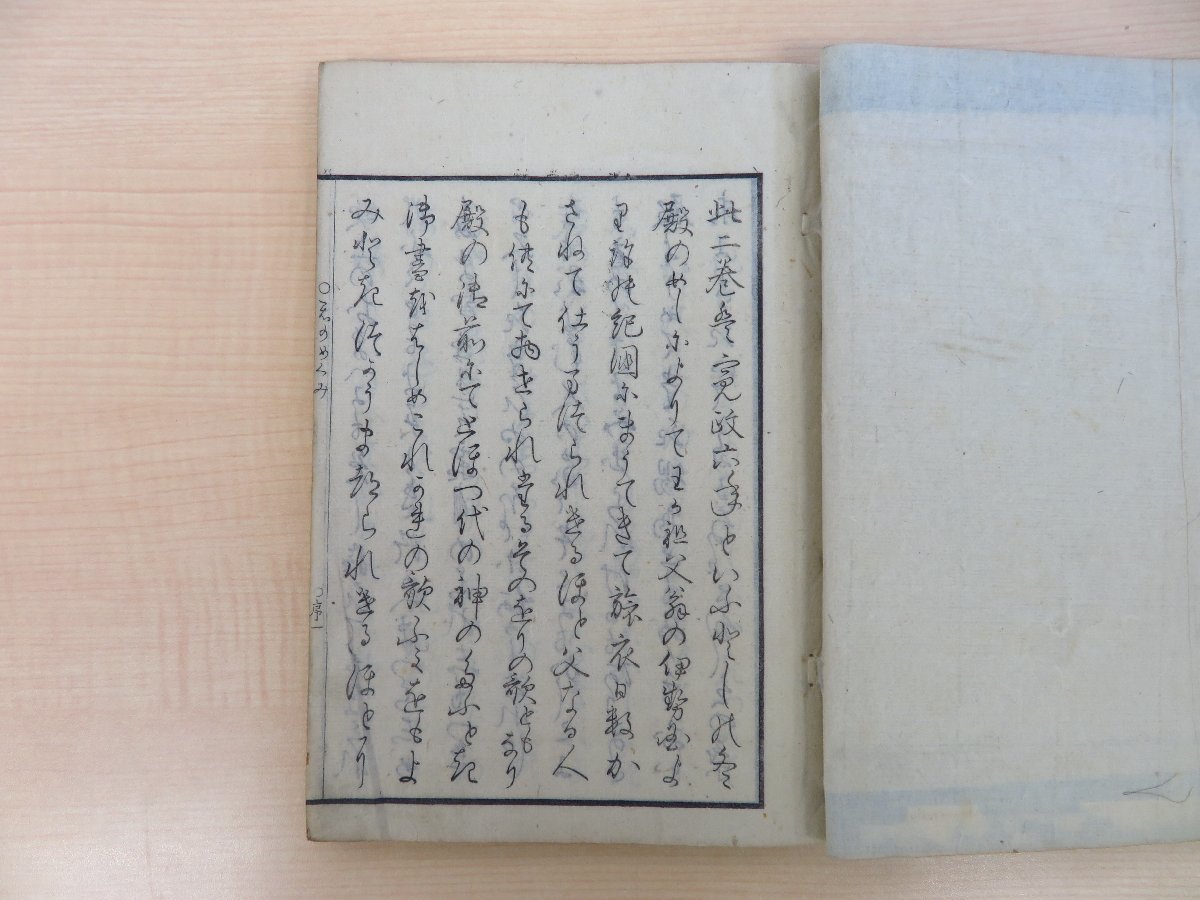 此二巻は寛政六年といふとしの冬
殿のめしによりてわか祖父翁の伊勢國よ
り此紀國にまうてきて旅衣日数か
さねて仕うまつられけるほと父なる人
も供にて物せられたるそのをりの歌ともなり
殿の御前にてとほつ代の神のたふとき
御書をはしめこれかれの歌ふみをもよ
みときつかうまつられけるほとり
序一